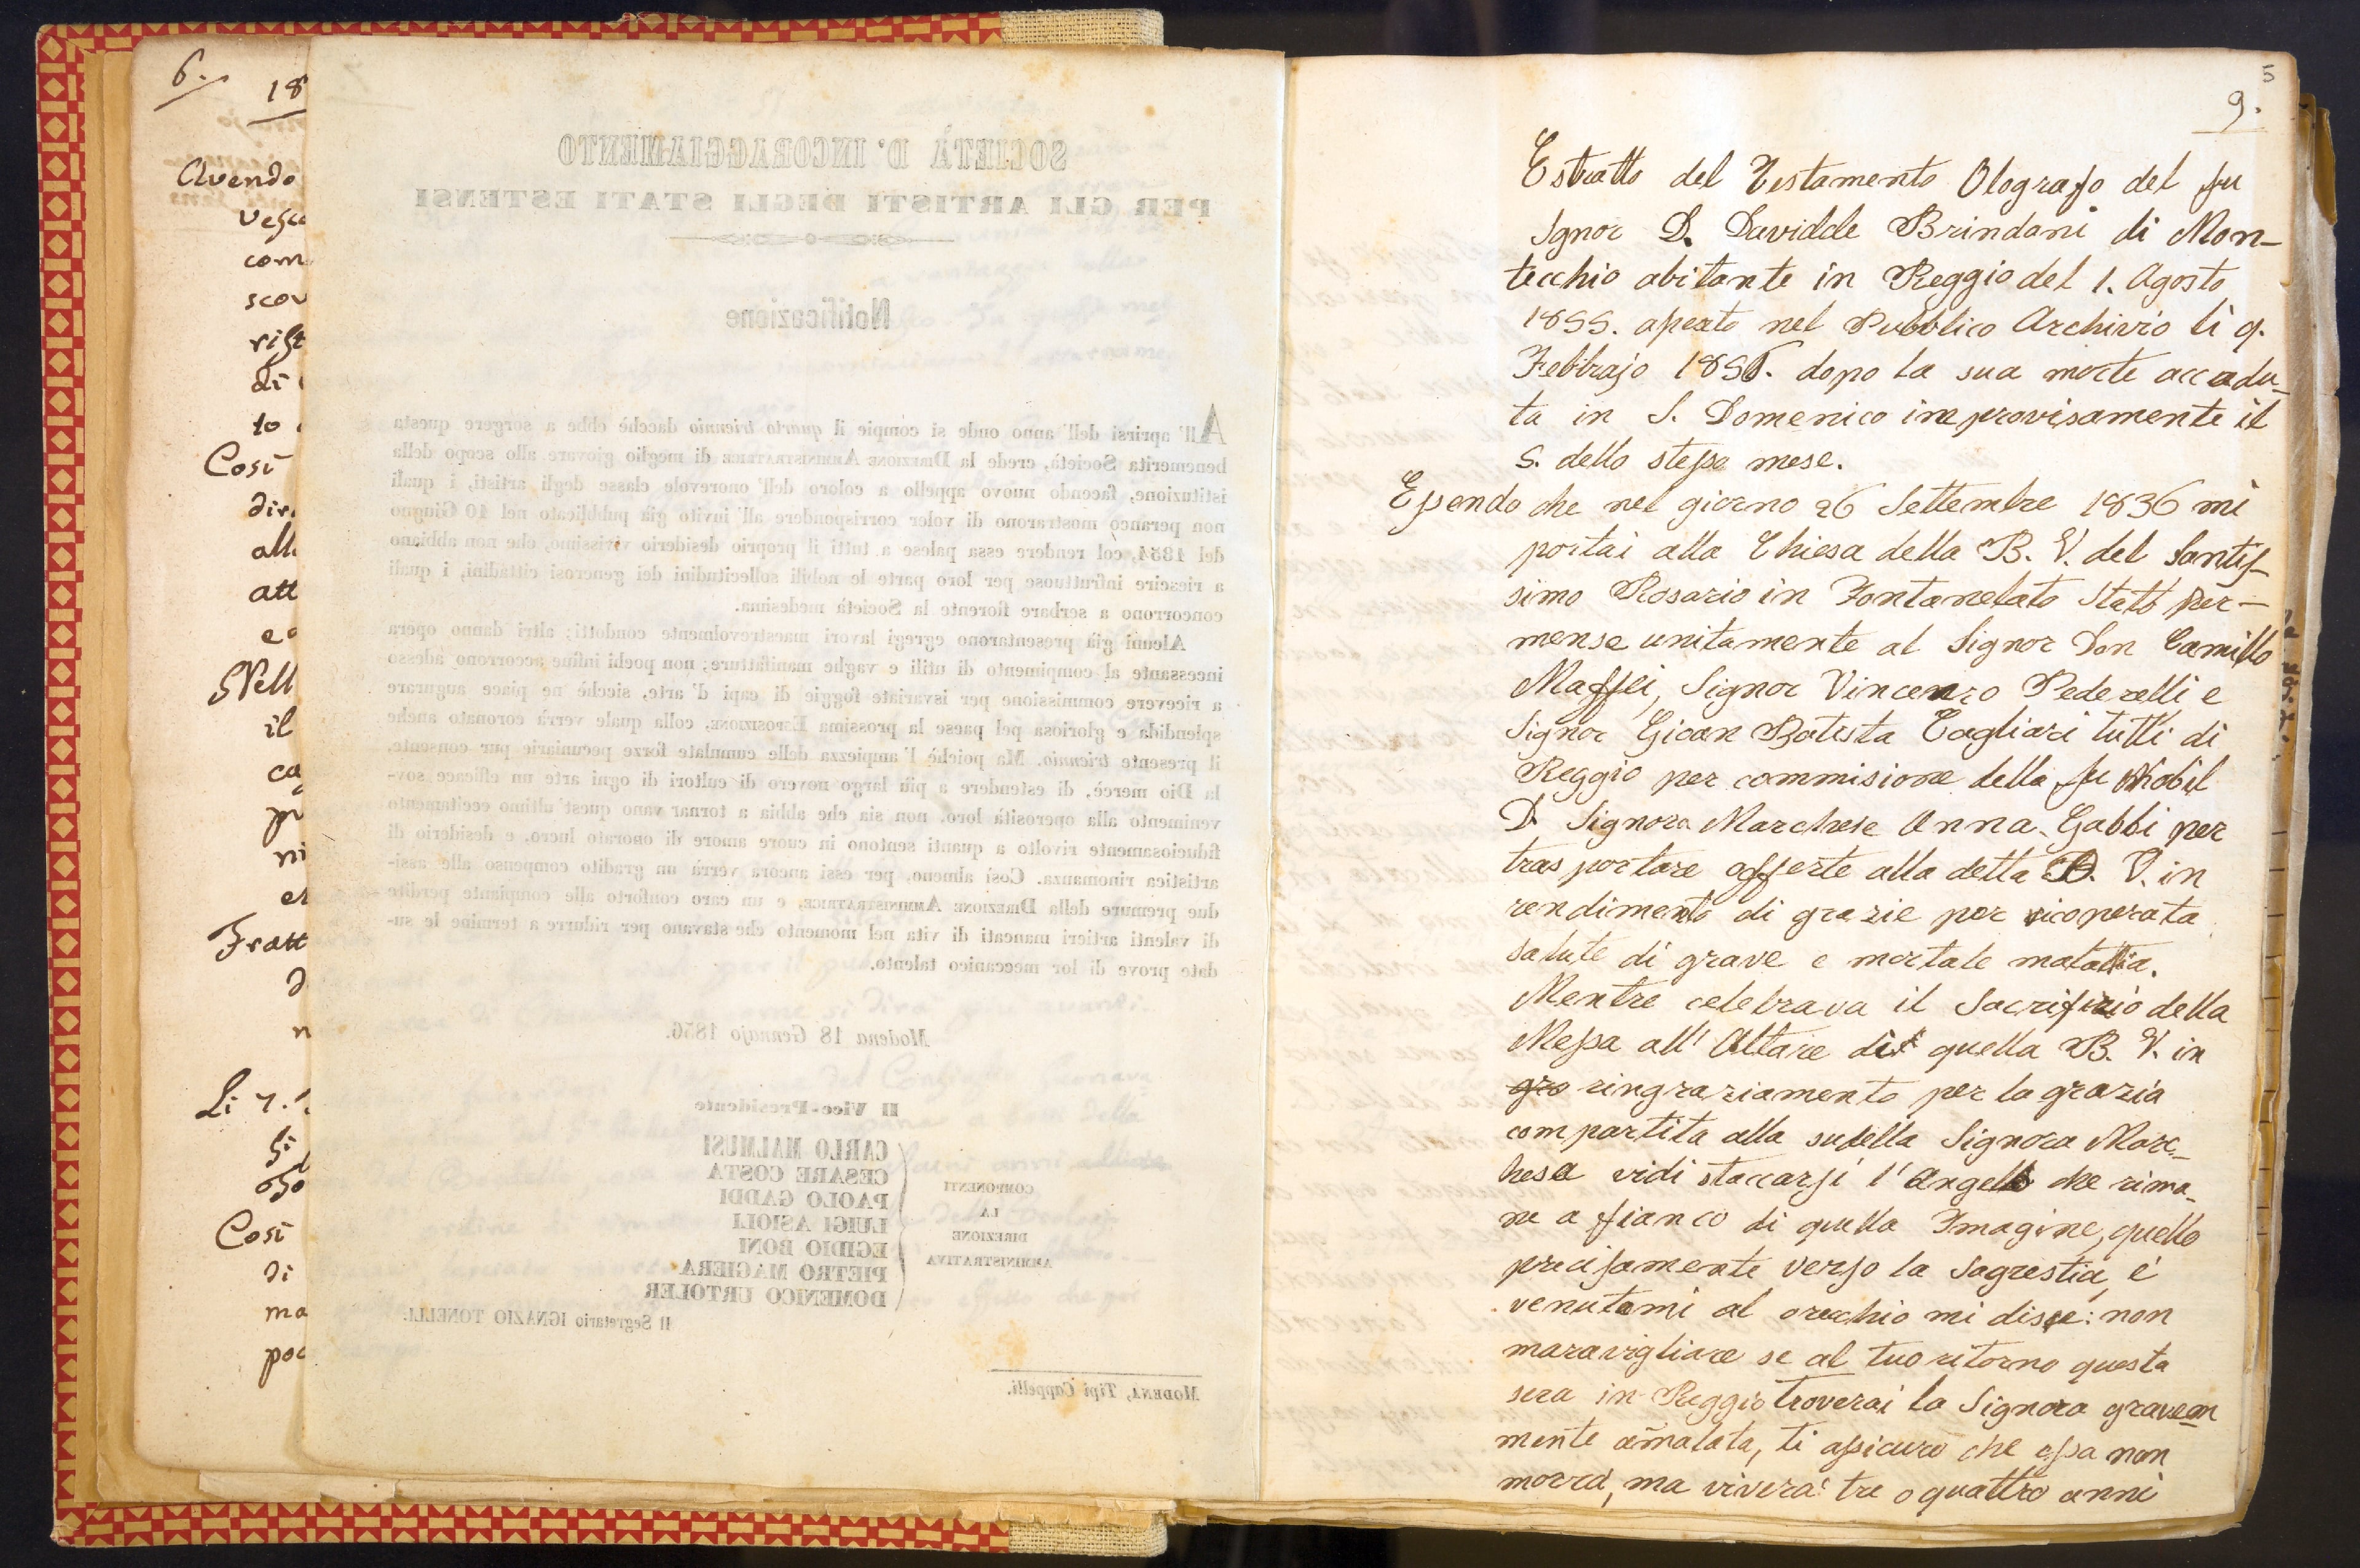 6.
18
Avendo
vesco
com
scov
rist
di
to
Così
dire
all
att
Nell
il
ca
pr
ni
Fratt
d
n
Li 7.
Così
di
ma
poc
SOCIETÀ D'INCORAGGIAMENTO
PER GLI ARTISTI DEGLI STATI ESTENSI
Notificazione
All'aprirsi dell'anno onde si compie il quarto triennio dacchè ebbe a sorgere questa
benemerita Società, crede la DIREZIONE AMMINISTRATRICE di meglio giovare allo scopo della
istituzione, facendo nuovo appello a coloro dell'onorevole classe degli artisti, i quali
non peranco mostrarono di voler corrispondere all'invito già pubblicato nel 10 Giugno
del 1854, col rendere essa palese a tutti il proprio desiderio vivissimo, che non abbiano
a riescire infruttuose per loro parte le nobili sollecitudini dei generosi cittadini, i quali
concorrono a serbare fiorente la Società medesima.
Alcuni già presentarono egregi lavori maestrevolmente condotti; altri danno opera
incessante al compimento di utili e vaghe manifatture; non pochi infine accorrono adesso
a ricevere commissione per isvariate foggie di capi d'arte, sicchè ne piace augurare
splendida e gloriosa pel paese la prossima ESPOSIZIONE, colla quale verrà coronato anche
il presente triennio. Ma poichè l'ampiezza delle cumulate forze pecuniarie pur consente,
la Dio mercè, di estendere a più largo novero di cultori di ogni arte un efficace sov-
venimento alla operosità loro, non sia che abbia a tornar vano quest'ultimo eccitamento
fiduciosamente rivolto a quanti sentono in cuore amore di onorato lucro, e desiderio di
artistica rinomanza. Così almeno, per essi ancora verrà un gradito compenso alle assi-
due premure della DIREZIONE AMMINISTRATRICE, e un caro conforto alle compiante perdite
di valenti artieri mancati di vita nel momento che stavano per ridurre a termine le su-
date prove di lor meccanico talento.
Modena 18 Gennajo 1856.
Il Vice-Presidente
CARLO MALMUSI
CESARE COSTA
PAOLO GADDI
LUIGI ASIOLI
EGIDIO BONI
PIETRO MAGIERA
DOMENICO URTOLER
COMPONENTI
LA
DIREZIONE
AMMINISTRATIVA
Il Segretario IGNAZIO TONELLI.
MODENA, Tipi Cappelli.
5
9.
Estratto del Testamento Olografo del fu
Signor D. Davidde Brindani di Mon-
tecchio abitante in Reggio del 1. Agosto
1855. aperto nel Pubblico Archivio li 9.
Febbrajo 1856. dopo la sua morte accadu-
ta in S. Domenico improvisamente il
5. dello stesso mese.
Essendo che nel giorno 26 Settembre 1836 mi
portai alla Chiesa della B. V. del Santis-
simo Rosario in Fontanelato Stato Par-
mense unitamente al Signor Don Camillo
Maffei, Signor Vincenzo Pederelli e
Signor Gioan Batista Cagliari tutti di
Reggio per commisione della fu Nobil
D. Signora Marchese Anna Gabbi per
trasportare offerte alla detta B. V. in
rendimento di grazie per ricoperata
salute di grave e mortale malattia.
Mentre celebrava il Sacrifizio della
Messa all'Altare di quella B. V. in
gra ringraziamento per la grazia
compartita alla sudella Signora Marc-
hesa vidi staccarsi l'Angelo che rima-
ne a fianco di quella Imagine, quello
precisamente verso la Sagrestia, e
venutomi al orecchio mi disse: non
maravigliare se al tuo ritorno questa
sera in Reggio troverai la Signora gravem
mente am̃alata, ti assicuro che essa non
morrà, ma viverà tre o quattro anni